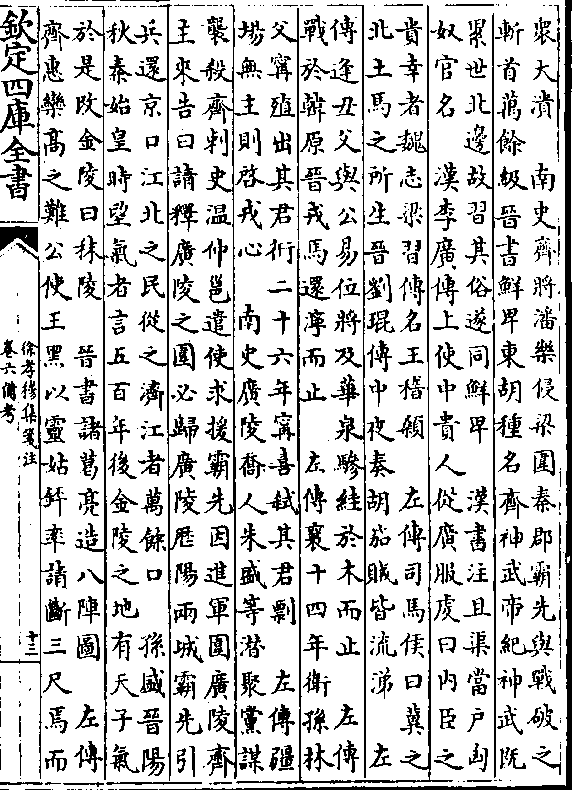 眾大潰　南史齊將潘樂侵梁圍秦郡霸先與戰破之
斬首萬餘級晉書鮮卑東胡種名齊神武帝紀神武既
累世北邊故習其俗遂同鮮卑　漢書注且渠當戶匈
奴官名　漢李廣傳上使中貴人從廣服虔曰內臣之
貴幸者魏志梁習傳名王稽顙　左傳司馬侯曰冀之
北土馬之所生晉劉琨傳中夜奏胡笳賊皆流涕　左
傳逢丑父與公易位將及華泉驂絓於木而止　左傳
戰於韓原晉戎馬還濘而止　左傳襄十四年衛孫林
父甯殖出其君衎二十六年甯喜弑其君剽　左傳疆
場無主則啓戎心　南史廣陵喬人朱盛等潛聚黨謀
襲殺齊刺史温仲邕遣使求援霸先因進軍圍廣陵齊
主來告曰請釋廣陵之圍必歸廣陵厯陽兩城霸先引
兵還京口江北之民從之濟江者萬餘口　孫盛晉陽
秋秦始皇時望氣者言五百年後金陵之地有天子氣
於是改金陵曰秣陵　晉書諸葛亮造八陣圖　左傳
齊惠欒高之難公使王黑以靈姑鉟率請斷三尺焉而
欽定四庫全書
徐孝穆集箋注
卷六備考
十三